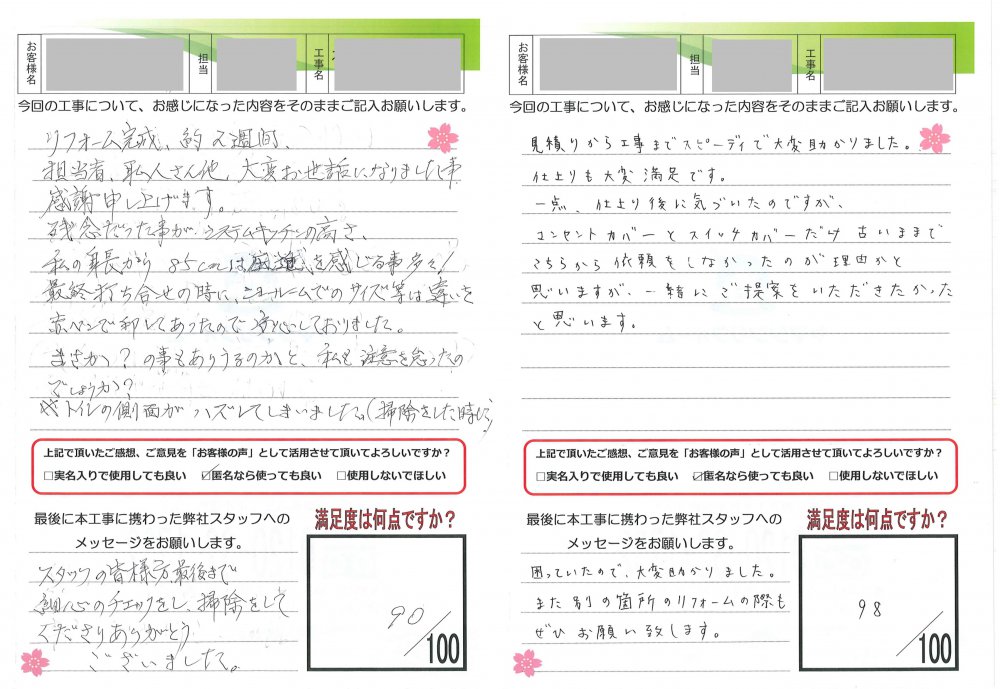 お客様名
担当
工事名
今回の工事について、お感じになった内容をそのままご記入お願いします。
リフォーム完成、約2週間、
担当者、職人さん他、大変お世話になりました事
感謝申し上げます。
残念だった事が システムキッチンの高さ、
私の身長から 85cmは を感じる事多々!
最終打ち合せの時に、ショールームでのサイズ等は違いを
赤ペンで印してあったので 安心しておりました。
まさか?の事もありうるのかと、私も 注意を怠ったの
でしょうか?
トイレの側面が ハズレてしまいました。(掃除をした時に)
上記で頂いたご感想、ご意見を「お客様の声」として活用させて頂いてよろしいですか?
□実名入りで使用しても良い ☑匿名なら使っても良い □使用しないでほしい
最後に本工事に携わった弊社スタッフへの
メッセージをお願いします。
スタッフの皆様方最後まで
細心のチェックをし、掃除をして
くださりありがとう
ございました。
満足度は何点ですか?
90/100
お客様名
担当
工事名
今回の工事について、お感じになった内容をそのままご記入お願いします。
見積りから工事までスピーディで大変助かりました。
仕上りも大変満足です。
一点、仕上り後に気づいたのですが、
コンセントカバーとスイッチカバーだけ 古いままで
こちらから依頼をしなかったのが理由かと
思いますが、一緒にご提案をいただきたかった
と思います。
上記で頂いたご感想、ご意見を「お客様の声」として活用させて頂いてよろしいですか?
□実名入りで使用しても良い ☑匿名なら使っても良い □使用しないでほしい
最後に本工事に携わった弊社スタッフへの
メッセージをお願いします。
困っていたので、大変助かりました。
また 別の箇所のリフォームの際も
ぜひ お願い致します。
満足度は何点ですか?
98/100